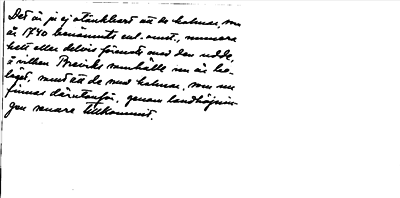 Det är ju ej otänkbart att de holmar, som
år 1740 benämnts enl. ovust., numera
helt eller delvis förenats med den udde,
å vilken Breviks samhälle nu är be-
läget, medan att de små holmar, som nu
finnas därutanför, genom landhöjnin-
gen senare tillkommit.